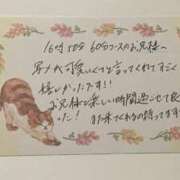 16時10分 60分コースのお兄様へ
写メが可愛いくてと言ってくれてすごく
嬉しかったです!!
お兄様と楽しい時間過ごせて良
った!
また来てくれるの待ってます♡